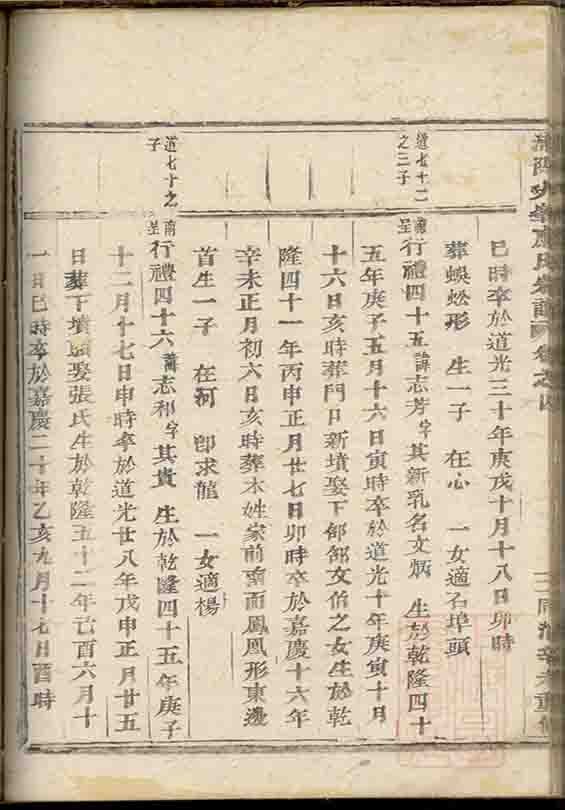 巳時卒於道光三十年庚戌十月十八日卯時
葬蜈蚣形 生一子 在心 一女適石埠頭
道七十二之二子
行禮四十五諱志芳字其新乳名文炳 生於乾隆四十
五年庚子五月十六日寅時卒於道光十年庚寅十月
十六日亥時葬門口新墳娶下郃郃文伯之女生於乾
隆四十一年丙申正月廿七日卯時卒於嘉慶十六年
辛未正月初六日亥時葬本姓家前面鳳凰形東邊
首生一子 在河 卽求龍 一女適楊
道七十之子
行禮四十六諱志和字其貴 生於乾隆四十五年庚子
十二月十七日申時卒於道光廿八年戊申正月廿五
日葬下墳頭娶張氏生於乾隆五十二年己酉六月十
一日巳時卒於嘉慶二十年乙亥九月十七日酉時